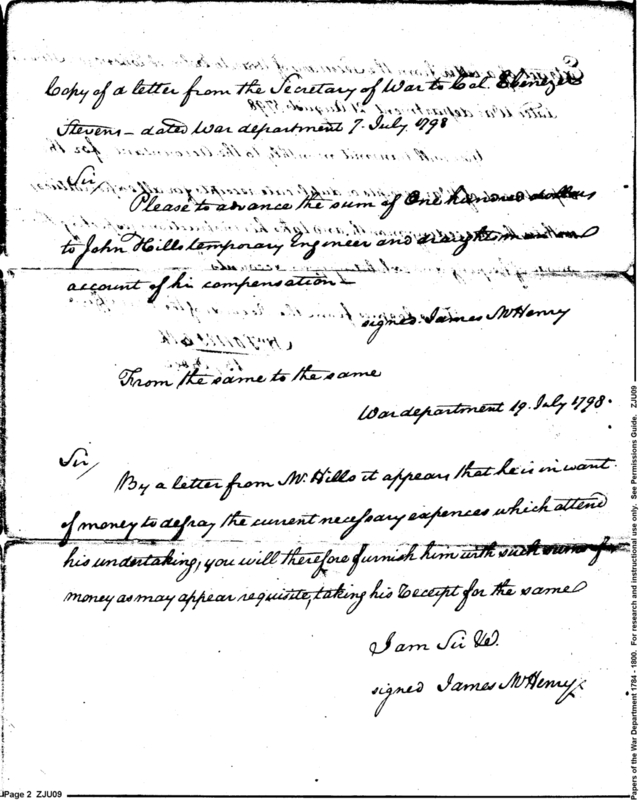 Copy of a letter from the Secretary of War to Col. Ebenezer
Stevens – dated War department 7. July 1798
Sir
Please to advance the sum of One hundred dollars
to John Hills temporary Engineer and draughtsman on
account of his compensation –
signed James McHenry
From the same to the same
War department 19. July 1798.
Sir/
By a letter from Mr. Hills it appears that he is in want
of money to defray the current necessary expences which attend
his undertaking, you will therefore furnish him with such sums of
money as may appear requisite, taking his Receipt for the same
I am Sir &c.
signed James McHenry
Page 2 ZJU09
Papers of the War Department 1784 - 1800. For research and instructional use only. See Permissions Guide. ZJU09